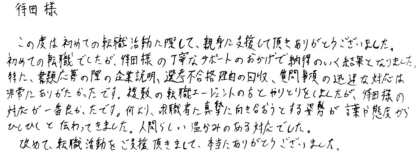 待田 様
この度は初めての転職活動に際して、親身に支援して頂きありがとうございました。
初めての転職でしたが、待田様の丁寧なサポートのおかげで納得のいく結果となりました。
特に、書類応募の際の企業説明、選考不合格理由の回収、質問事項の迅速な対応は
非常にありがたかったです。複数の転職エージェントの方とやりとりをしましたが、待田様の
対応が一番良かったです。何より、求職者に真摯に向き合おうとする姿勢が言葉や態度から
ひしひしと伝わってきました。人間らしい温かみのある対応でした。
改めて、転職活動をご支援頂きまして、本当にありがとうございました。